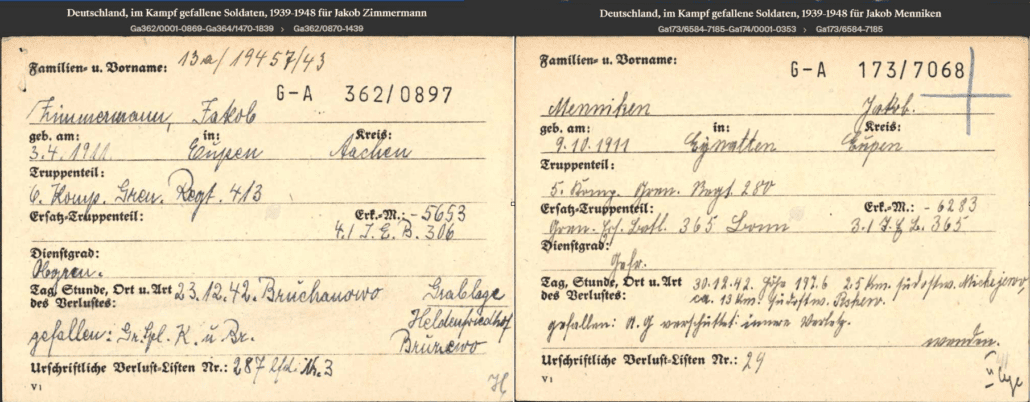 Deutschland, im Kampf gefallene Soldaten, 1939-1948 für Jakob Zimmermann
Ga362/0001-0869-Ga364/1470-1839 › Ga362/0870-1439
Familien- u. Vorname: 13a/19457/43
G-A 362/0897
Zimmermann, Jakob
geb. am: in: Kreis:
3.4.1911. Eupen Aachen
Truppenteil:
6. Komp. Gren. Regt. 413
Ersatz-Truppenteil: Erk.-M.: -5653
4./I.E.B. 306
Dienstgrad:
Obgren.
Tag, Stunde, Ort u. Art 23.12.42. Bruchanowo Grablage
des Verlustes: Heldenfriedhof
gefallen: Gr.Spl. K. u. Br.
Urschriftliche Verlust-Listen Nr.: 287 lfd. Nr. 3
V 1
Deutschland, im Kampf gefallene Soldaten, 1939-1948 für Jakob Menniken
Ga173/6584-7185-Ga174/0001-0353 › Ga173/6584-7185
Familien- u. Vorname:
G-A 173/7068
Menniken Jakob.
geb. am: in: Kreis:
9.10.1911 Eynatten Eupen
Truppenteil:
5. Komp. Gren. Regt. 280
Ersatz-Truppenteil: Erk.-M.: -6283
Gren. Ers. Batl. 365 Bonn 3./I.E.B. 365
Dienstgrad:
Gefr.
Tag, Stunde, Ort u. Art 30.12.42. Höhe 197.6 25 km. südostw.
des Verlustes: ca. 13 km. südostw.
gefallen: A.G verschüttet innere Verletz.
Urschriftliche Verlust-Listen Nr.: 29
V 1